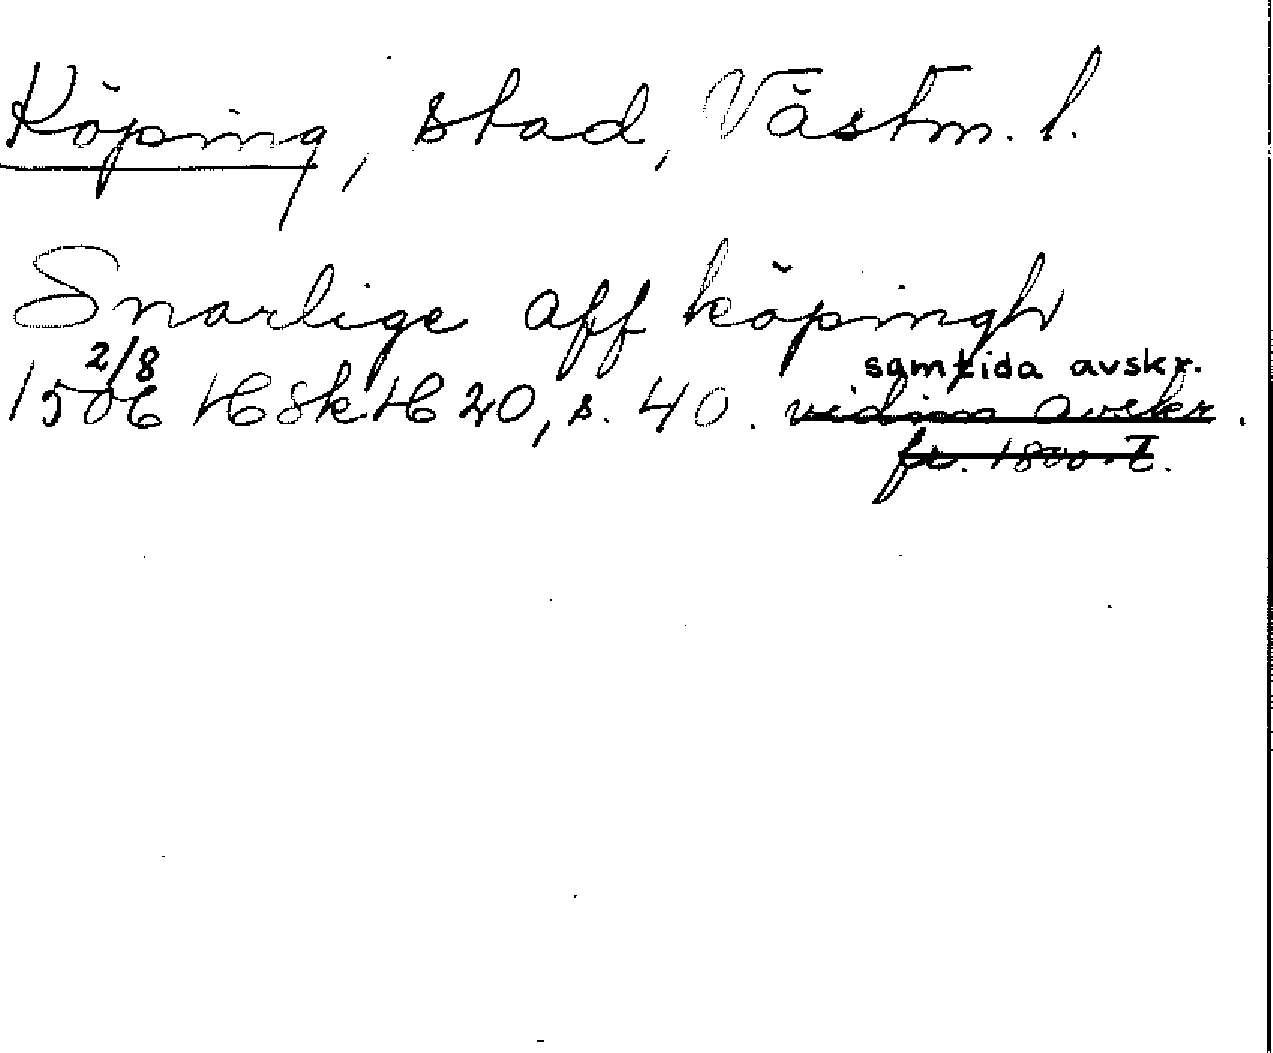 Köping, stad, Västm. l.
Snarlige aff köpingh
1506 2/8 HSkH 20, s. 40. samtida avskr.
vidim avskr.
fr. 1800-t.